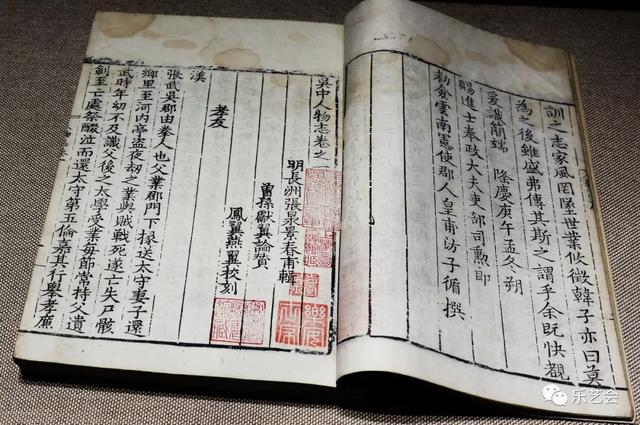 訓之志家風罔墜世業似微韓子亦曰莫
為之後雖盛弗傳其斯之謂乎余既快覩
爰識簡端 隆慶庚午孟冬朔
賜進士奉政大夫吏部司勲郎
勑僉雲南憲使郡人皇甫汸子循撰
吳中人物志卷之
明長洲張㫤景春甫輯
曾孫獻翼論贊
鳳翼燕翼校刻
孝友
漢
張武吳郡由拳人也父業郡門下掾送太守妻子還
鄉里至河內亭盜夜劫之業與賊戰死遂亡失尸骸
武時年幼不及識父後之太學受業每節常持父遺
劍至亡處祭醊泣而還太守第五倫嘉其行舉孝廉
乐艺会